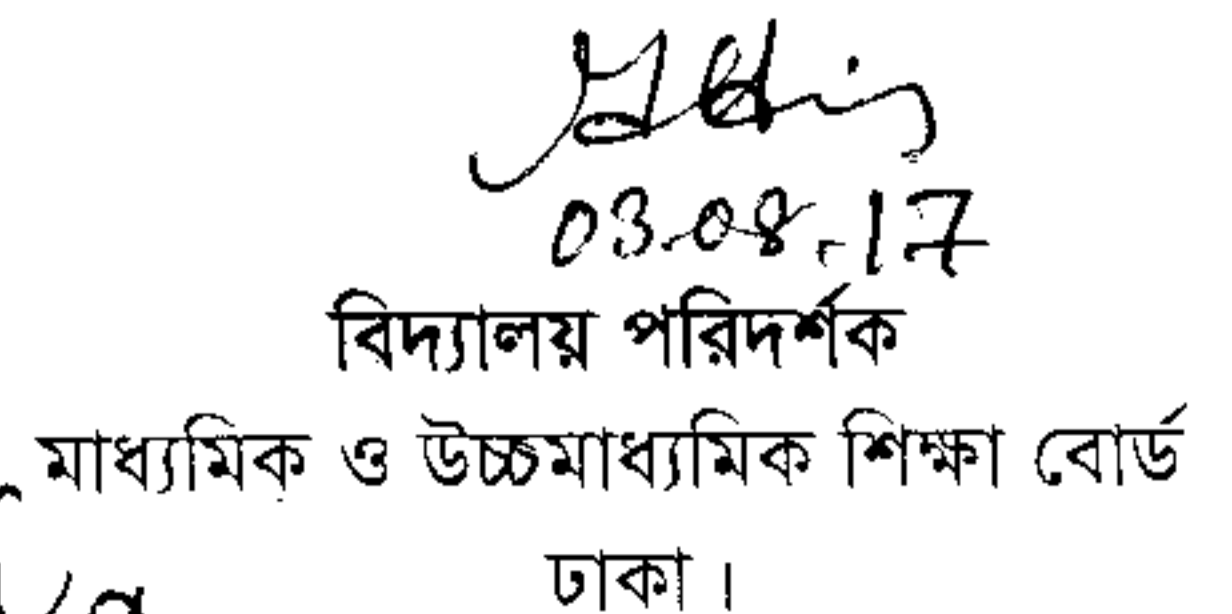 03.08.17
বিদ্যালয় পরিদর্শক
মাধ্যমিক ও উচ্চমাধ্যমিক শিক্ষা বোর্ড
ঢাকা।